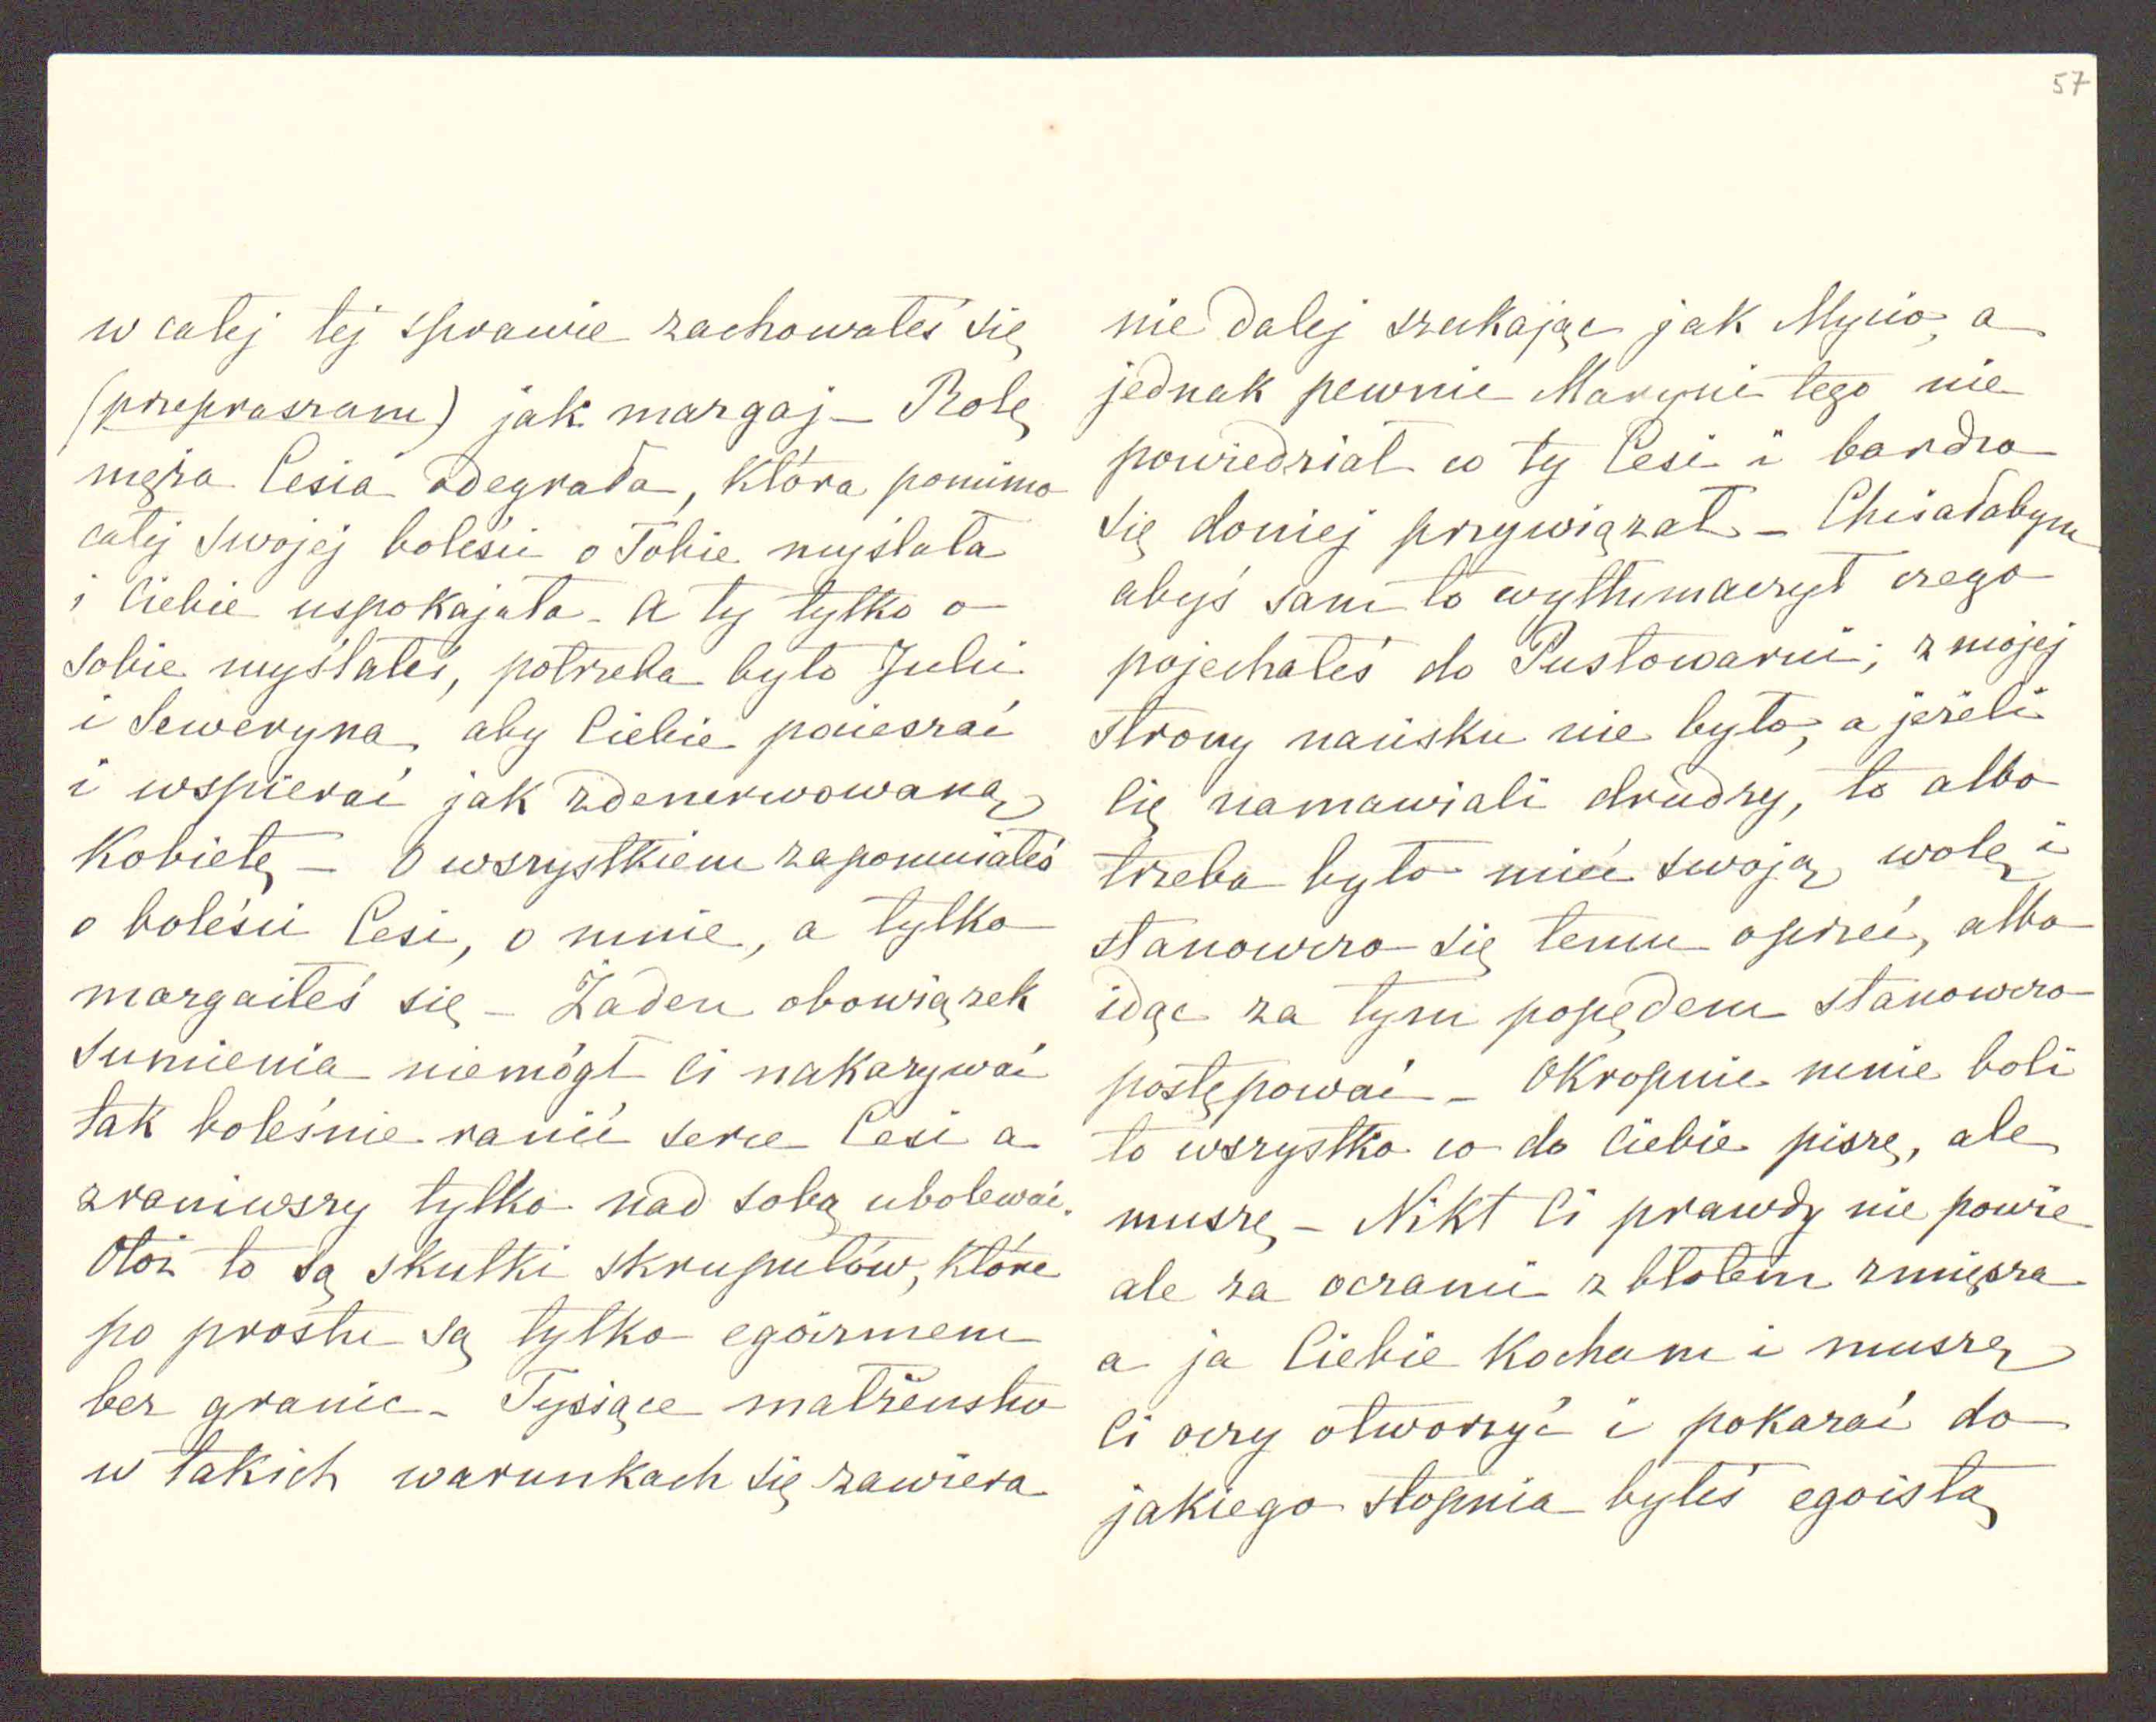 57
w całej tej sprawie zachowałeś się
(przepraszam) jak margaj – Rolę
męża Cesia odegrała, która pomimo
całej swojej boleści o Tobie myślała
i Ciebie uspokajała – A ty tylko o
sobie myślałeś, potrzeba było Julii
i Seweryna, aby Ciebie pocieszać
i wspierać jak zdenerwowaną
Kobietę – O wszystkiem zapomniałeś
o boleści Cesi, o mnie, a tylko
margaiłeś się – Żaden obowiązek
Sumienia niemógł Ci nakazywać
tak boleśnie ranić serce Cesi a
zraniwszy tylko nad sobą ubolewać.
Otóż to są skutki skrupułów, które
po prostu są tylko egoizmem
bez granic – Tysiące małżeństw
w takich warunkach się zawiera
nie dalej szukając jak Mycio, a
jednak pewnie Maryni tego nie
powiedział co ty Cesi i bardzo
się doniej przywiązał – Chciałabym
abyś sam to wytłumaczył czego
pojechałeś do Pustowarni; z mojej
strony nacisku nie było, a jeżeli
Cię namawiali drudzy, to albo
trzeba było mieć swoją wolę i
stanowczo się temu oprzeć, albo
idąc za tym popędem stanowczo
postępować – Okropnie mnie boli
to wszystko co do Ciebie piszę, ale
muszę – Nikt Ci prawdy nie powie
ale za oczami z błotem zmięsza
a ja Ciebie Kocham i muszę
Ci oczy otworzyć i pokazać do
jakiego stopnia byłeś egoistą